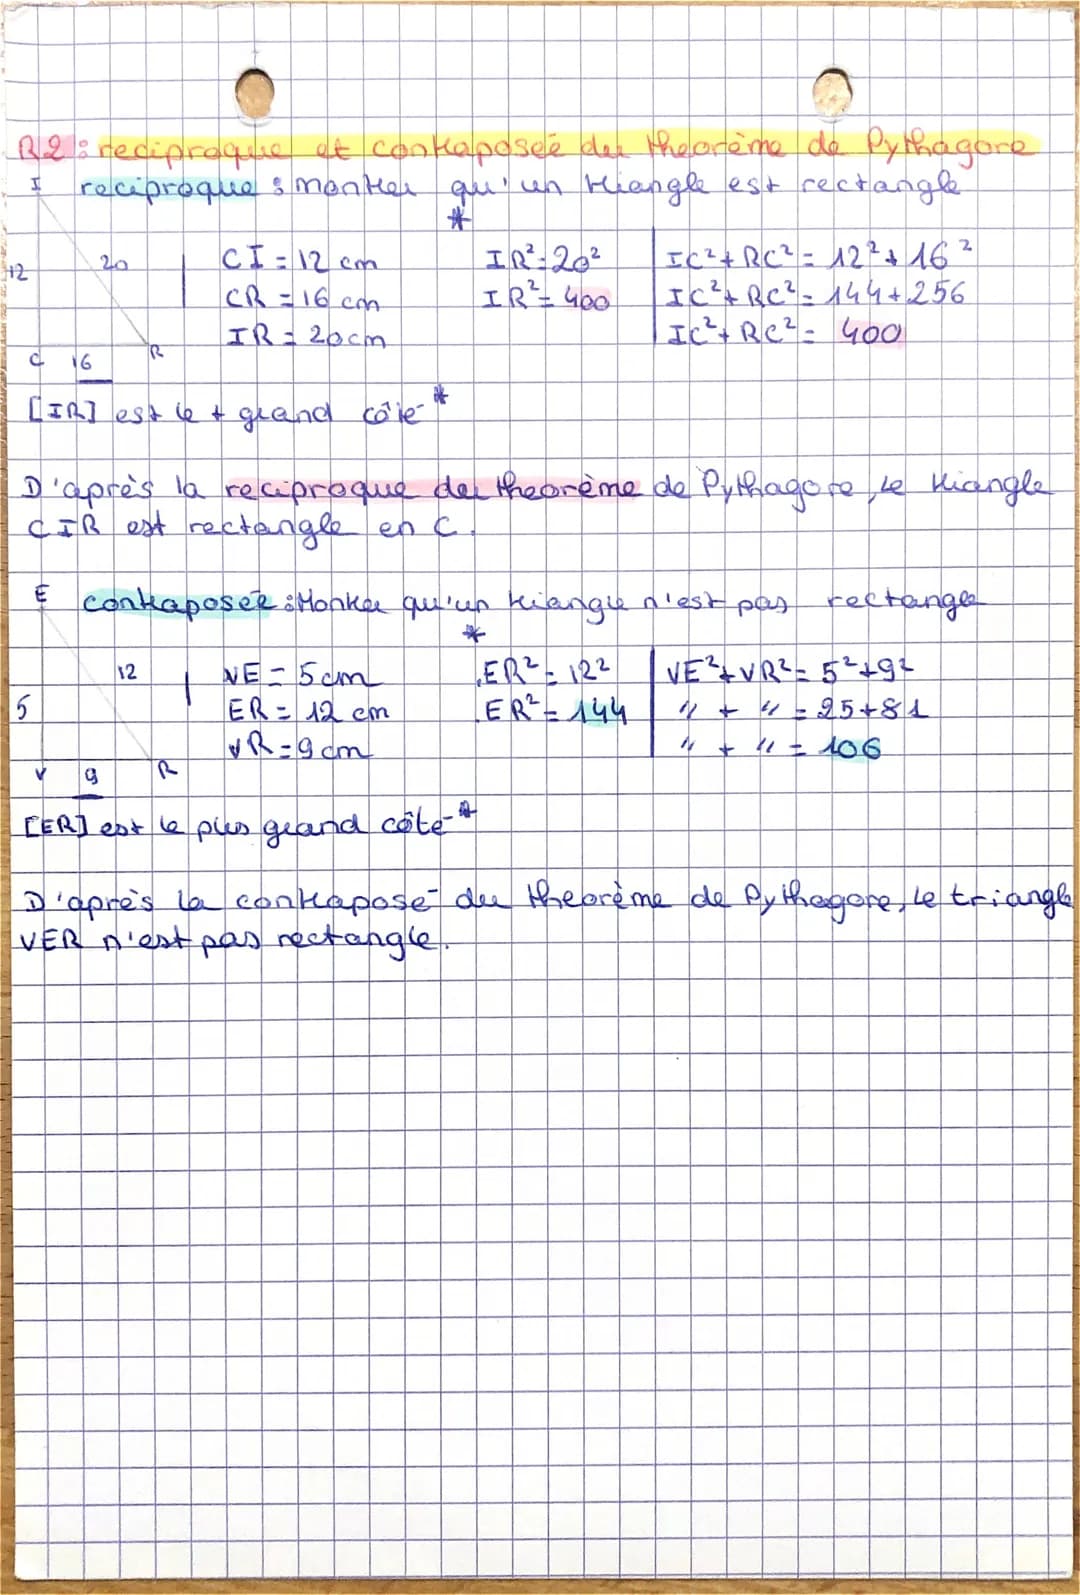 R2 : reciproque et contraposée du theorème de Pythagore
I reciproque : montrer qu'un triangle est rectangle
*
12 20 CI = 12 cm IR² = 20² IC² + RC² = 12² + 16²
CR = 16 cm IR² = 400 IC² + RC² = 144 + 256
IR = 20cm IC² + RC² = 400
C 16 R
[IR] est le + grand côté *
D'après la reciproque du theorème de Pythagore, le triangle
CIR est rectangle en C.
E contraposée : Montrer qu'un triangle n'est pas rectangle
*
12 VE = 5cm ER² = 12² VE² + VR² = 5² + 9²
5 ER = 12 cm ER² = 144 " + " = 25 + 81
VR = 9cm " + " = 106
V 9 R
[ER] est le plus grand côté *
D'après la contraposé du theorème de Pythagore, le triangle
VER n'est pas rectangle.